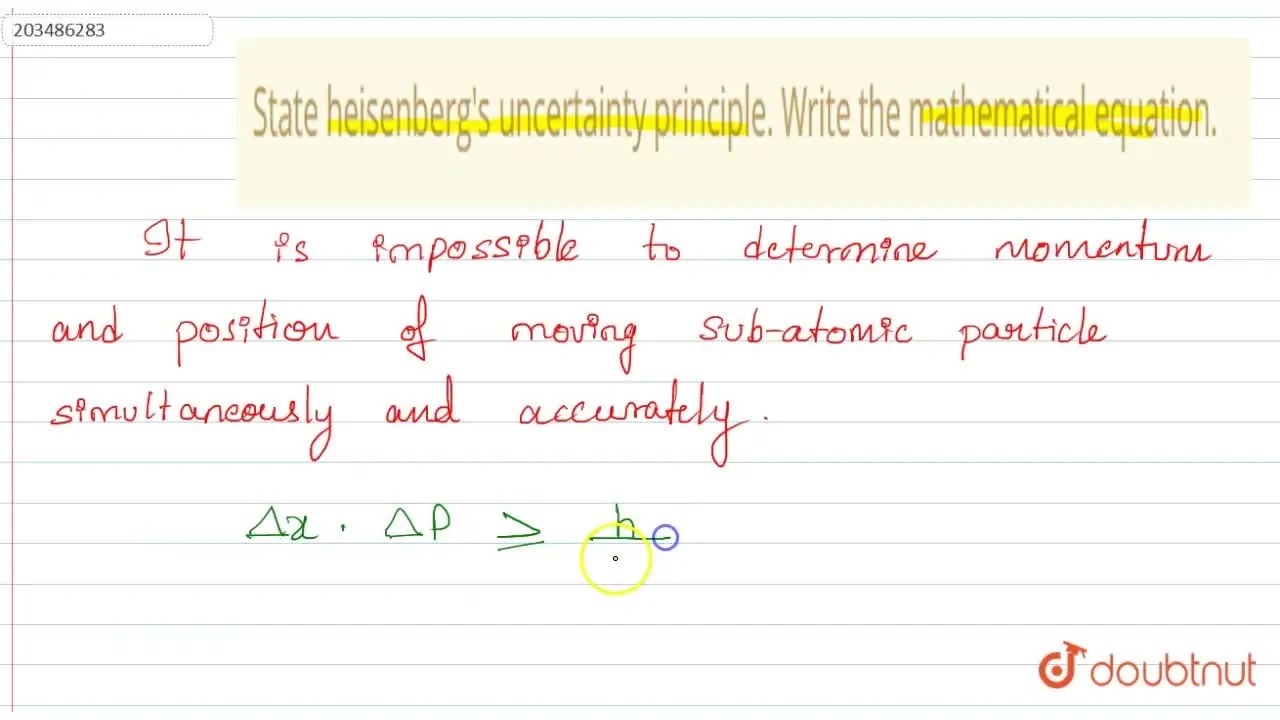 203486283
State heisenberg's uncertainty principle. Write the mathematical equation.
It is impossible to determine momentum
and position of moving sub-atomic particle
simultaneously and accurately.
Δx . ΔP ≥ h
doubtnut